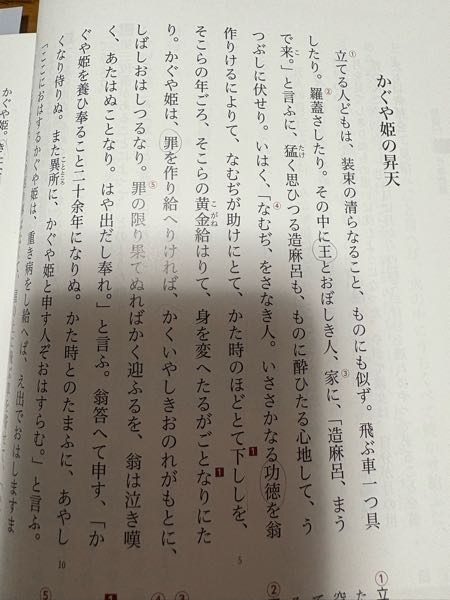 かぐや姫の昇天
①立てる人どもは、装束の清らなること、ものにも似ず。飛ぶ車一つ具
したり。②羅蓋さしたり。その中に王とおぼしき人、家に、③「造麻呂、まう
で来。」と言ふに、猛く思ひつる造麻呂も、ものに酔ひたる心地して、う
つぶしに伏せり。いはく、④「なむぢ、をさなき人。いささかなる功徳を翁
作りけるによりて、なむぢが助けにとて、かた時のほどとて下ししを、
そこらの年ごろ、そこらの黄金給はりて、身を変へたるがごとなりにた
り。かぐや姫は、罪を作り給へりければ、かくいやしきおのれがもとに、
しばしおはしつるなり。⑤罪の限り果てぬればかく迎ふるを、翁は泣き嘆
く、あたはぬことなり。はや出だし奉れ。」と言ふ。翁答へて申す、「か
ぐや姫を養ひ奉ること二十余年になりぬ。かた時とのたまふに、あやし
くなり侍りぬ。また異所に、かぐや姫と申す人ぞおはすらむ。」と言ふ。
「ここにおはするかぐや姫は、重き病をし給へば、え出でおはしますま
こ
たけ
こがね
ことどころ
1
1
5
10
①立
②
③
④
1
⑤
かぐや姫。